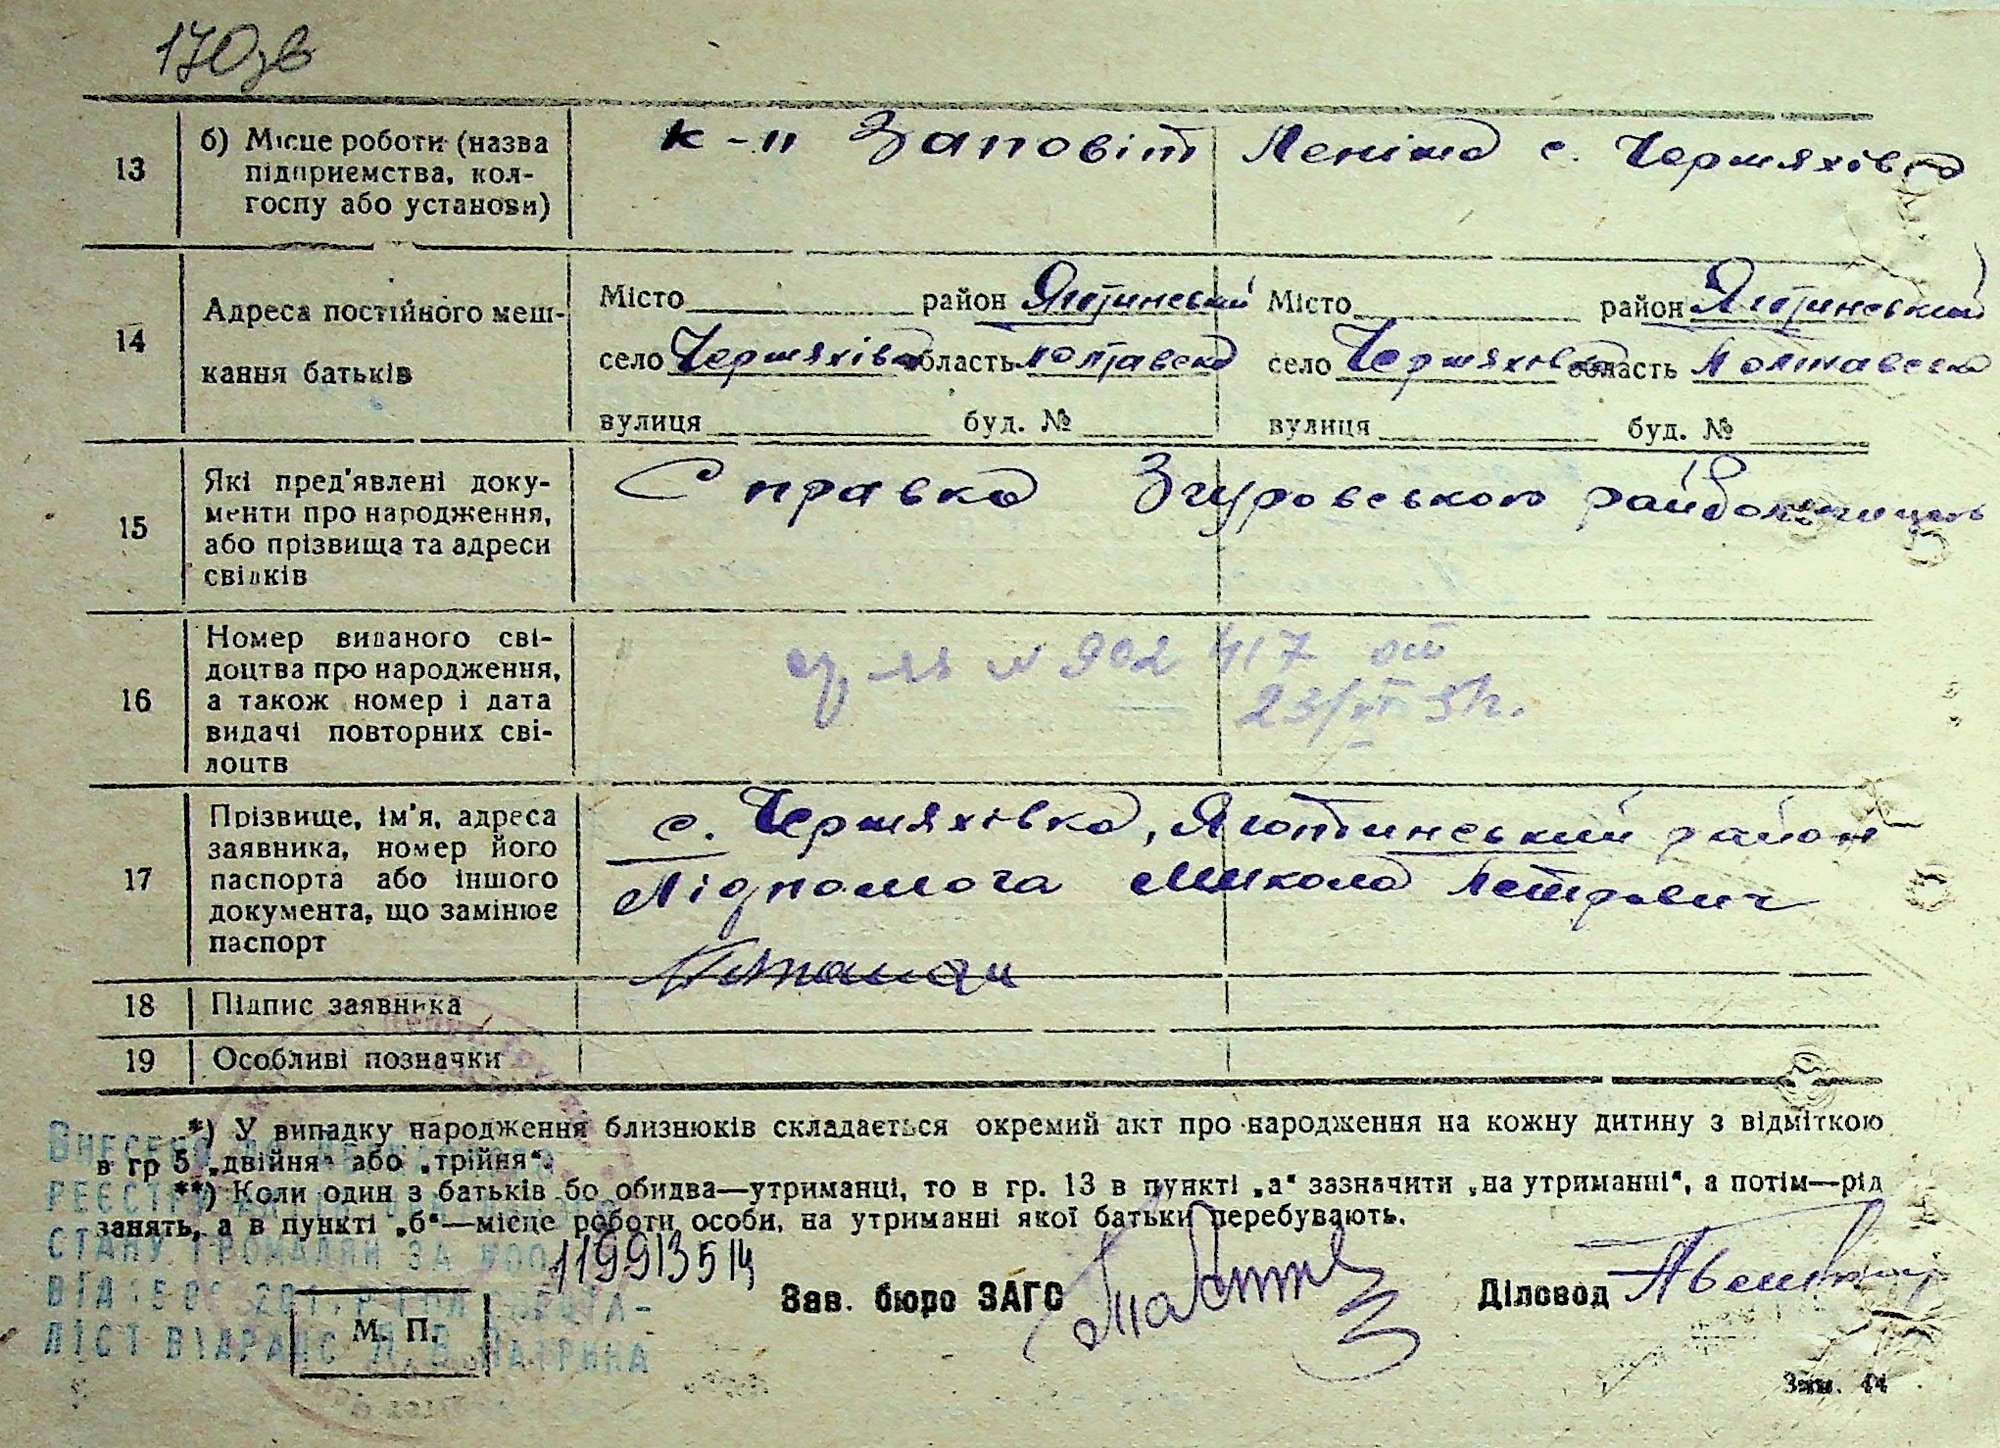 170зв
13
б) Місце роботи (назва
підприємства, кол-
госпу або установи)
к-п Заповіт Леніна с. Черняхівка
14
Адреса постійного меш-
кання батьків
Місто район Яготинський Місто район Яготинський
село Черняхівка область Полтавська село Черняхівка область Полтавська
вулиця буд. № вулиця буд. №
15
Які пред'явлені доку-
менти про народження,
або прізвища та адреси
свідків
Справка Згуровською райбольниць
16
Номер виданого сві-
доцтва про народження,
а також номер і дата
видачі повторних сві-
доцтв
№ 902417 от
23/
17
Прізвище, ім'я, адреса
заявника, номер його
паспорта або іншого
документа, що замінює
паспорт
с. Черняхівка, Яготинський район
Підпомога Микола Петрович
18 Підпис заявника
19 Особливі позначки
*) У випадку народження близнюків складається окремий акт про народження на кожну дитину з відміткою
в гр 5 „двійня“ або „трійня“.
**) Коли один з батьків бо обидва—утриманці, то в гр. 13 в пункті „а“ зазначити „на утриманні“, а потім—рід
занять, а в пункті „б“—місце роботи особи, на утриманні якої батьки перебувають.
Внесено
РЕЄСТР
СТАНУ ГРОМАДЯН ЗА №00
11991351
ВІД
ЛІСТ ВІДРАЦС
М. П.
Зав. бюро ЗАГС
Діловод
Зам. 44